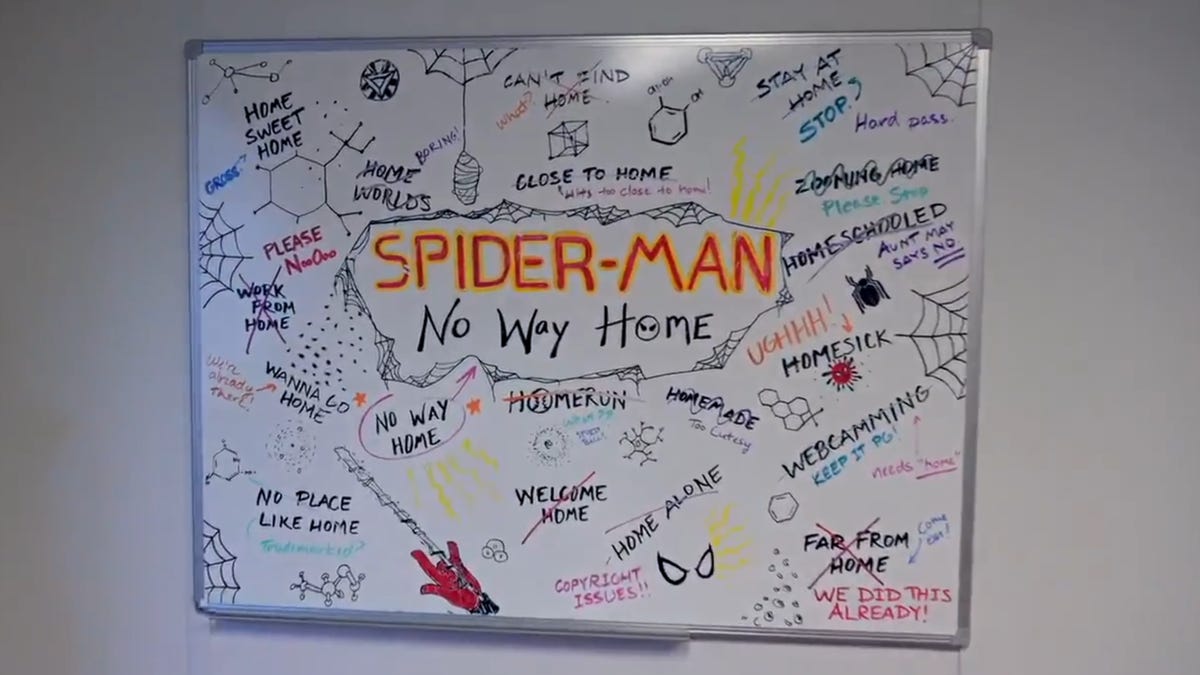 HOME
SWEET
HOME
GROSS
HOME
WORLDS
BORING!
CAN'T FIND
HOME
What?
CLOSE TO HOME
Hits too close to home!
OH
STAY AT
HOME
STOP.
Hard pass.
ZOOMING HOME
Please Stop
HOMESCHOOLED
AUNT MAY
SAYS NO
PLEASE
NooOoo
WORK
FROM
HOME
SPIDER-MAN
No Way Home
UGHHH!
HOMESICK
We're
already
there!!
WANNA GO
HOME
NO WAY
HOME
HOOMERUN
What??
HOMEMADE
Too Cutesy
WEBCAMMING
KEEP IT PG!
needs "home"
NO PLACE
LIKE HOME
Trademarked?
WELCOME
HOME
HOME ALONE
COPYRIGHT
ISSUES!!
FAR FROM
HOME
Come
on!
WE DID THIS
ALREADY!